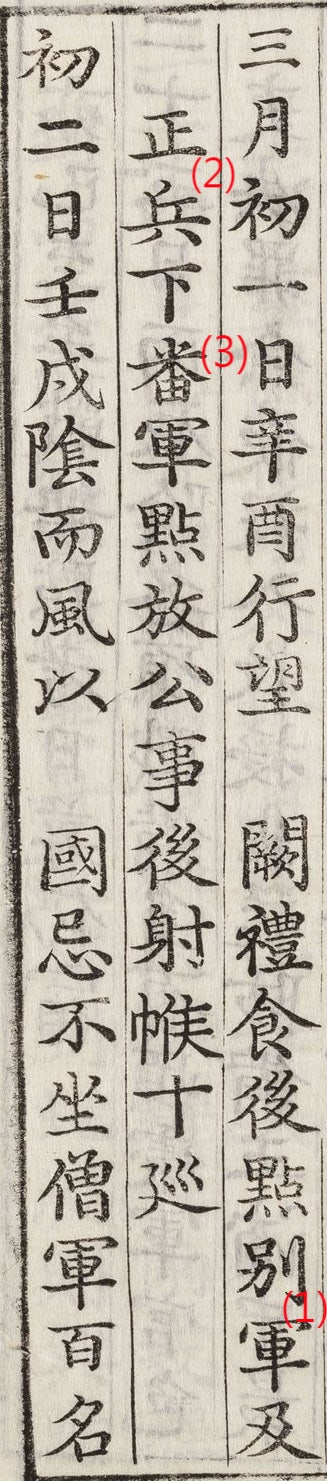 三月初一日辛酉行望 闕禮食後點別軍及
正兵下番軍點放公事後射帿十廵
初二日壬戌陰而風以 國忌不坐僧軍百名
(1)
(2)
(3)